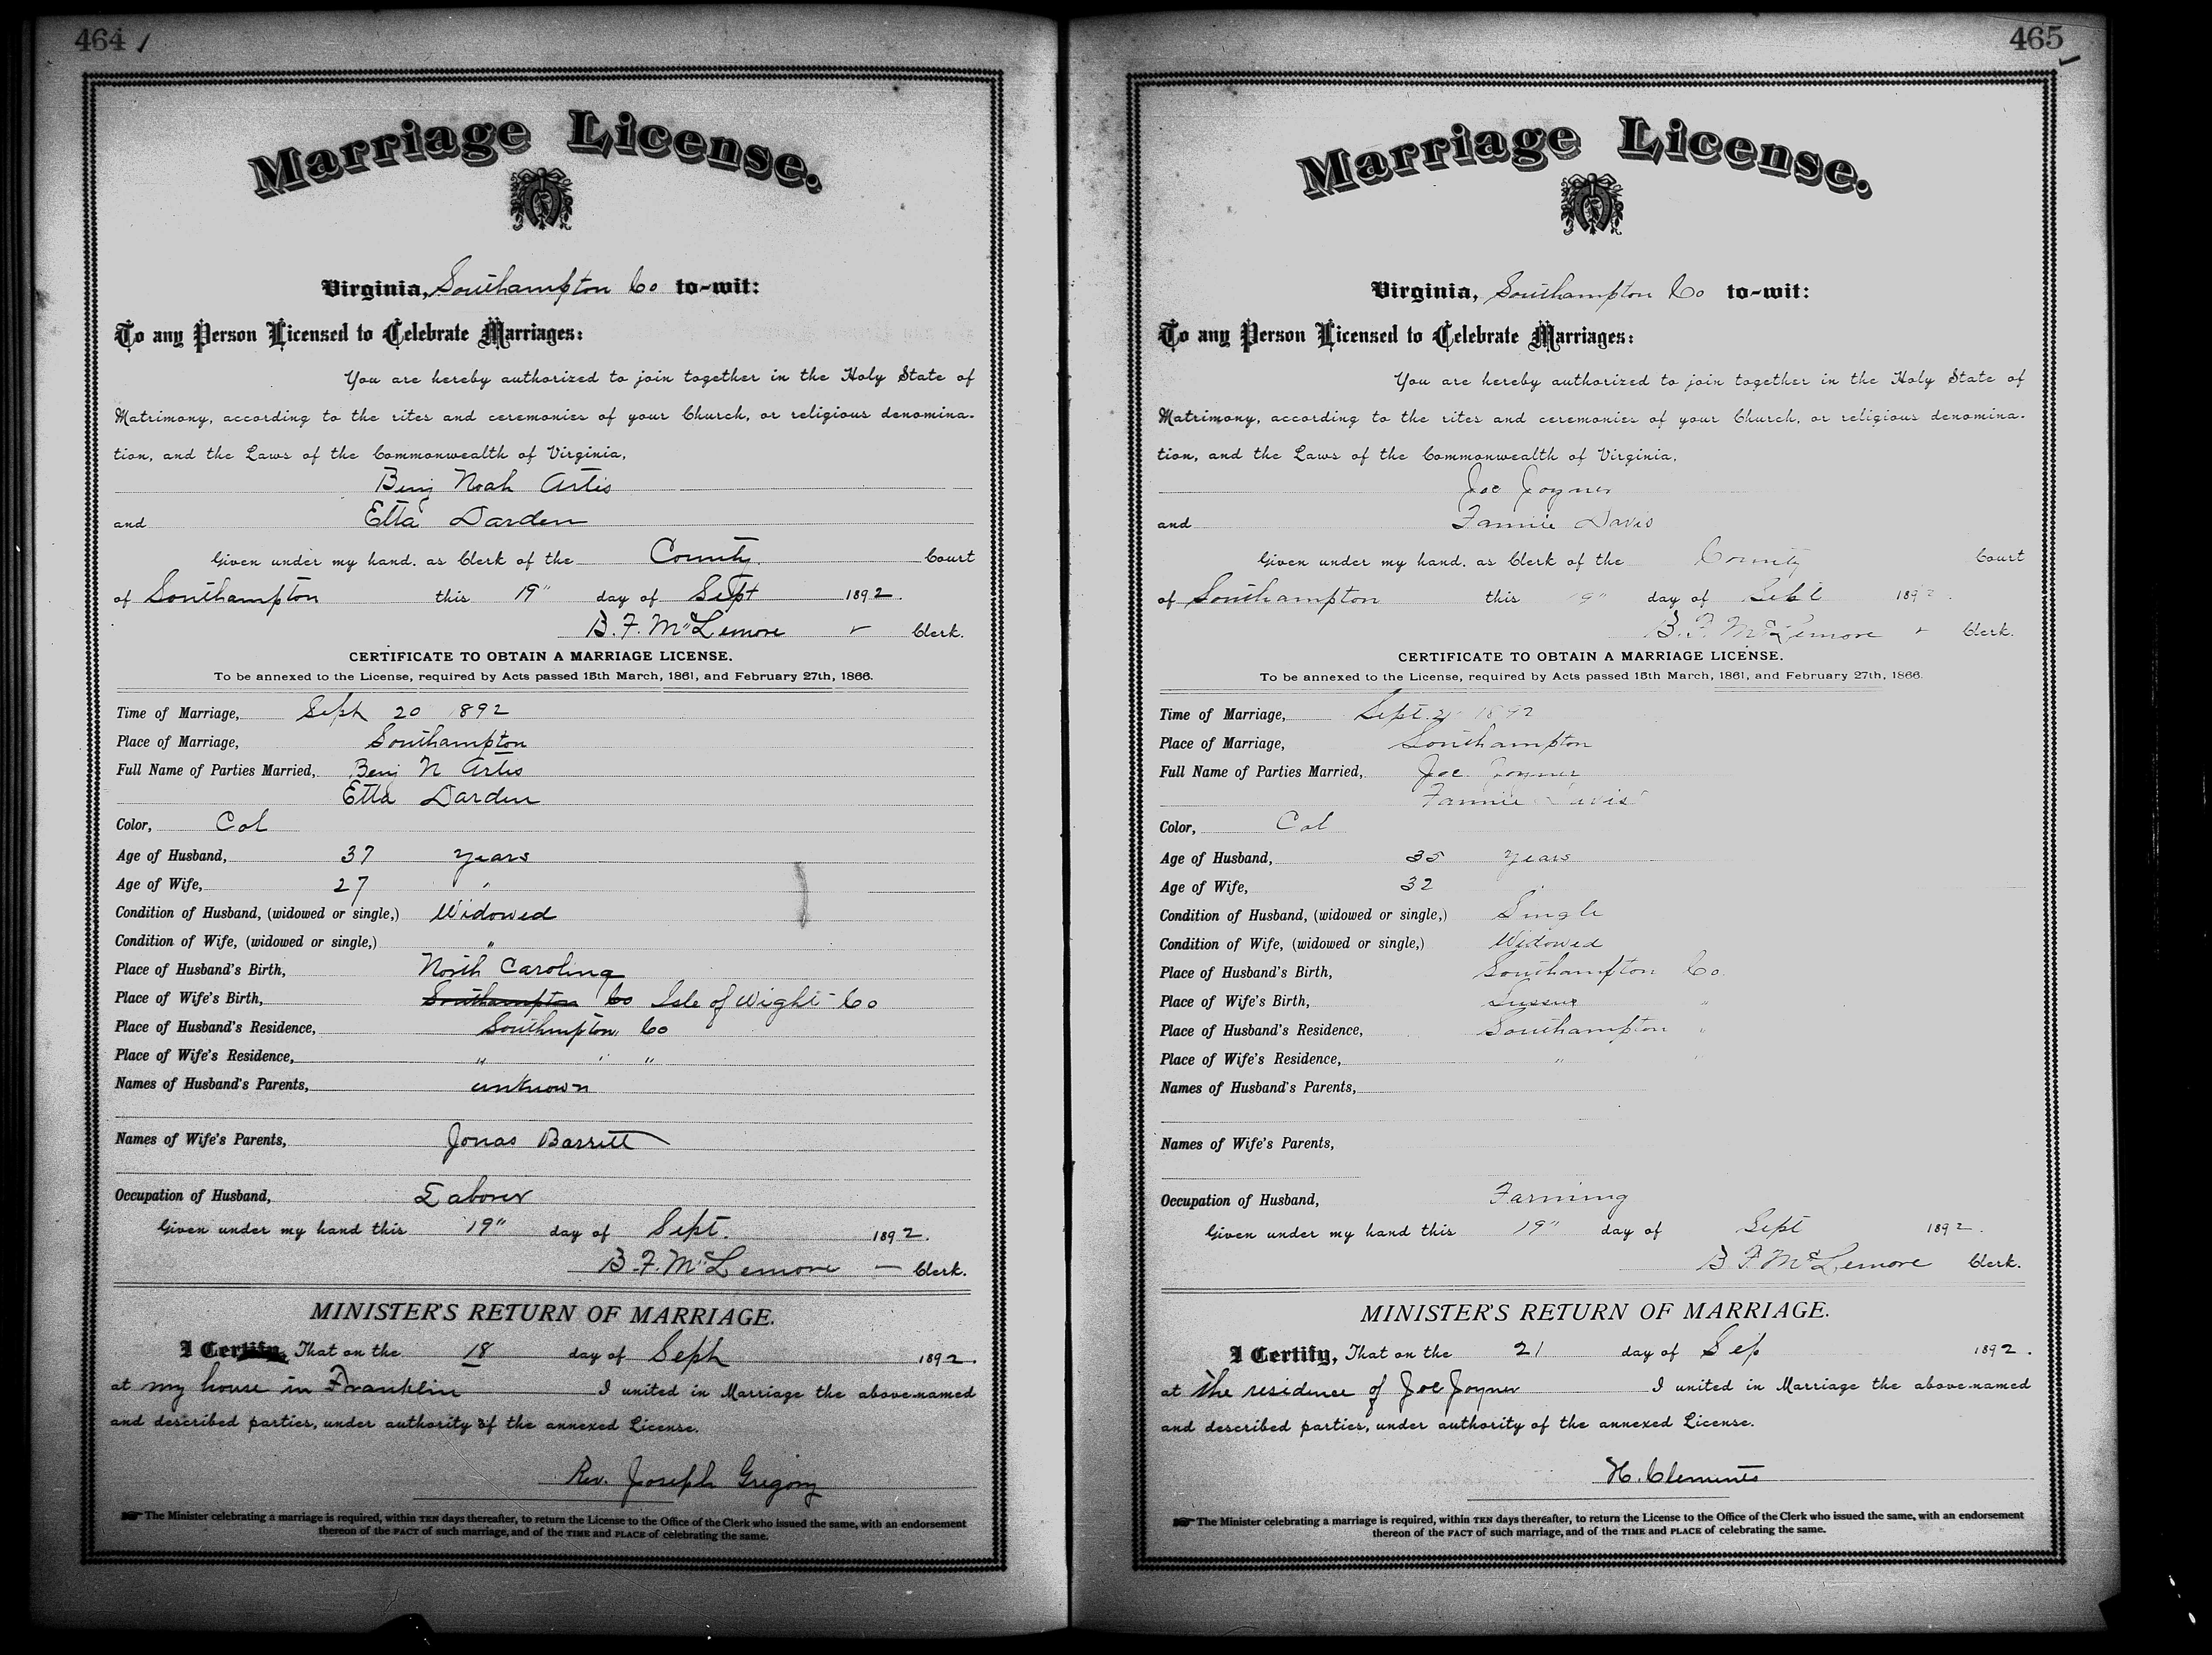 464
Marriage License.
Virginia, Southampton Co to-wit:
To any Person Licensed to Celebrate Marriages:
You are hereby authorized to join together in the Holy State of
Matrimony, according to the rites and ceremonies of your Church, or religious denomina-
tion, and the Laws of the Commonwealth of Virginia,
Benj Noah Artis
and Etta Darden
Given under my hand, as Clerk of the County Court
of Southampton this 19" day of Sept 1892.
B. F. McLemore Clerk.
CERTIFICATE TO OBTAIN A MARRIAGE LICENSE.
To be annexed to the License, required by Acts passed 15th March, 1861, and February 27th, 1866.
Time of Marriage, Sept 20 1892
Place of Marriage, Southampton
Full Name of Parties Married, Benj N Artis
Etta Darden
Color, Col
Age of Husband, 37 years
Age of Wife, 27 "
Condition of Husband, (widowed or single,) Widowed
Condition of Wife, (widowed or single,) "
Place of Husband's Birth, North Carolina
Place of Wife's Birth, Southampton Co Isle of Wight Co
Place of Husband's Residence, Southmpton Co
Place of Wife's Residence, " " "
Names of Husband's Parents, unknown
Names of Wife's Parents, Jonas Barrett
Occupation of Husband, Laborer
Given under my hand this 19" day of Sept. 1892.
B. F. McLemore — Clerk.
MINISTER'S RETURN OF MARRIAGE.
I Certify, That on the 18 day of Seph 1892.
at my house in Franklin I united in Marriage the above-named
and described parties, under authority of the annexed License.
Rev. Joseph Gregory
The Minister celebrating a marriage is required, within TEN days thereafter, to return the License to the Office of the Clerk who issued the same, with an endorsement
thereon of the FACT of such marriage, and of the TIME and PLACE of celebrating the same.
465
Marriage License.
Virginia, Southampton Co to-wit:
To any Person Licensed to Celebrate Marriages:
You are hereby authorized to join together in the Holy State of
Matrimony, according to the rites and ceremonies of your Church, or religious denomina-
tion, and the Laws of the Commonwealth of Virginia,
Joe Joyner
and Fannie Davis
Given under my hand, as Clerk of the County Court
of Southampton this 19" day of Sept 1892.
B. F. McLemore Clerk.
CERTIFICATE TO OBTAIN A MARRIAGE LICENSE.
To be annexed to the License, required by Acts passed 15th March, 1861, and February 27th, 1866.
Time of Marriage, Sept. 21 1892
Place of Marriage, Southampton
Full Name of Parties Married, Joe Joyner
Fannie Davis
Color, Col
Age of Husband, 35 years
Age of Wife, 32
Condition of Husband, (widowed or single,) Single
Condition of Wife, (widowed or single,) Widowed
Place of Husband's Birth, Southampton Co
Place of Wife's Birth, Sussex "
Place of Husband's Residence, Southampton "
Place of Wife's Residence, " "
Names of Husband's Parents,
Names of Wife's Parents,
Occupation of Husband, Farming
Given under my hand this 19" day of Sept 1892.
B F McLemore Clerk.
MINISTER'S RETURN OF MARRIAGE.
I Certify, That on the 21 day of Sep 1892.
at the residence of Joe Joyner I united in Marriage the above-named
and described parties, under authority of the annexed License.
H. Clements
The Minister celebrating a marriage is required, within TEN days thereafter, to return the License to the Office of the Clerk who issued the same, with an endorsement
thereon of the FACT of such marriage, and of the TIME and PLACE of celebrating the same.